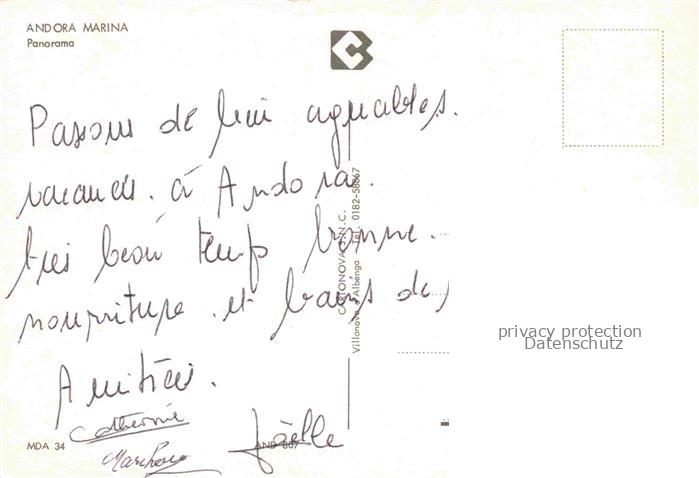 ANDORA MARINA
Panorama
Passons de bien agréables.
vacances. à Andora.
très beau temps bonne.
nourriture. et bains de
Amitiés.
Catherine
Joëlle
MDA 34
AND 807
CARTONOVA S.N.C.
Villanova d'Albenga Tel. 0182-58067
privacy protection
Datenschutz